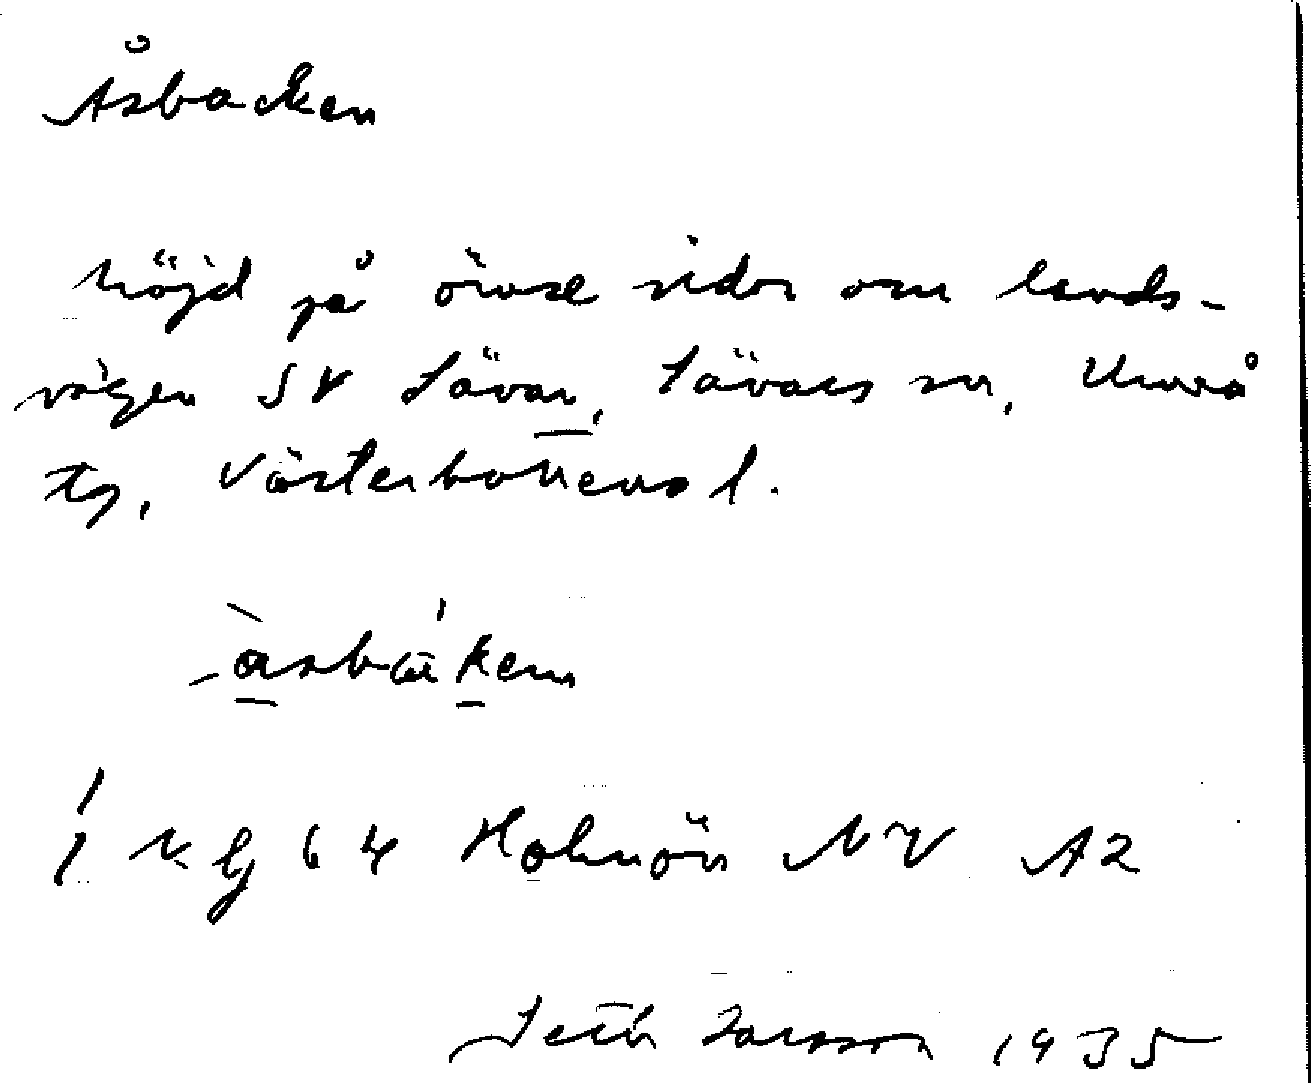 Åsbacken
höjd på ömse sidor om lands-
vägen SV Sävar, Sävars sn, Umeå
tg, Västerbottens l.
Kbl 64 Holmön NV A2
Seth Larsson 1935